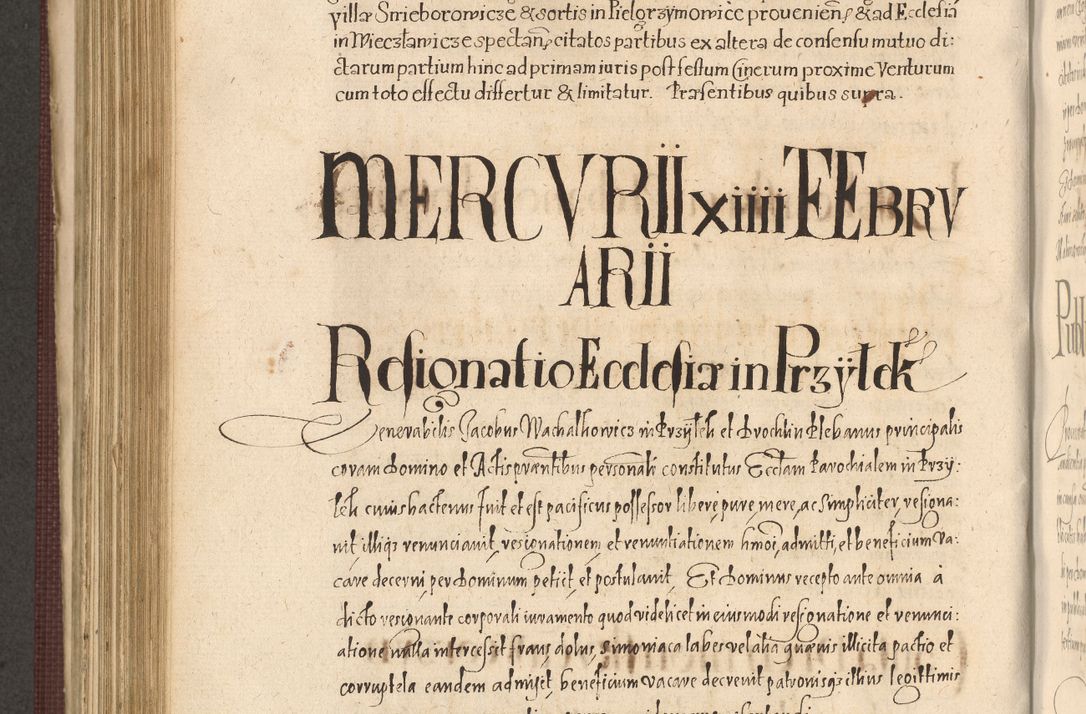 villæ Swieborowicze & sortis in Pielgrzymowice provenien, & ad Ecclesiã
in Wieczławicze spectan, citatos partibus ex altera de consensu mutuo di:
ctarum partium hinc ad primam iuris post festum Cinerum proxime Venturum
cum toto effectu differtur & limitatur. Præsentibus quibus supra.
MERCVRII xiiii FEBRV
ARII
Resignatio Ecclesiæ in Przÿłek
Venerabilis Jacobus Wachalhowicz in Przÿłek et Prochlin Plebanus principalis
coram Domino et Actis præntibus personali constitutus Ecctam Parochialem in Przÿ:
łek cuius hactenus fuit et est pacificus possessor libere, pure mere, ac simpliciter, resigna:
vit illiqz renunciavit, resignationem et renuntiationem hmoi, admitti, et beneficium va:
care decerni per Dominum petiit et postulavit. Et Dominus recepto ante omnia à
dicto resignante corporali iuramento quod videlicet in eiusmodi resignatione et renunci:
atione nulla intercessit fraus, dolus, simoniaca labes vel alia quævis illicita pactio et
corruptela eandem admisit, beneficium vacare decrevit patronisqz illius legittimis